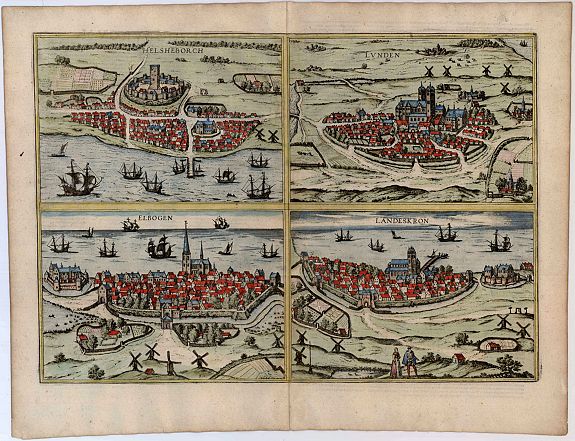 HELSHEBORCH
LVNDEN
ELBOGEN
LANDESKRON